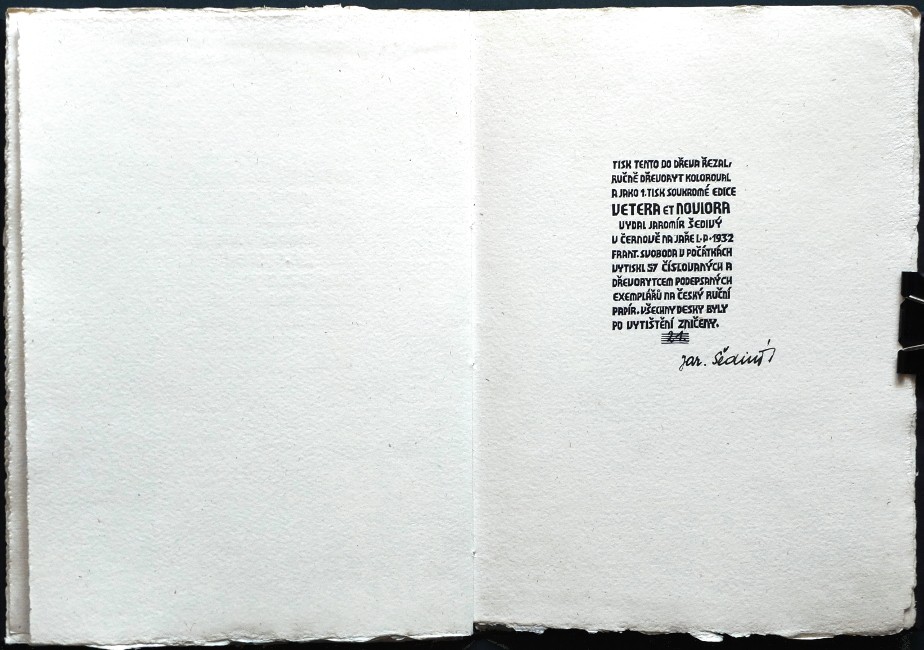 TISK TENTO DO DŘEVA ŘEZAL,
RUČNĚ DŘEVORYT KOLOROVAL
A JAKO 1. TISK SOUKROMÉ EDICE
VETERA ET NOVIORA
VYDAL JAROMÍR ŠEDIVÝ
V ČERNOVĚ NA JAŘE L·P·1932
FRANT. SVOBODA V POČÁTKÁCH
VYTISKL 57 ČÍSLOVANÝCH A
DŘEVORYTCEM PODEPSANÝCH
EXEMPLÁŘŮ NA ČESKÝ RUČNÍ
PAPÍR. VŠECHNY DESKY BYLY
PO VYTIŠTĚNÍ ZNIČENY.
21.
Jar. Šedivý